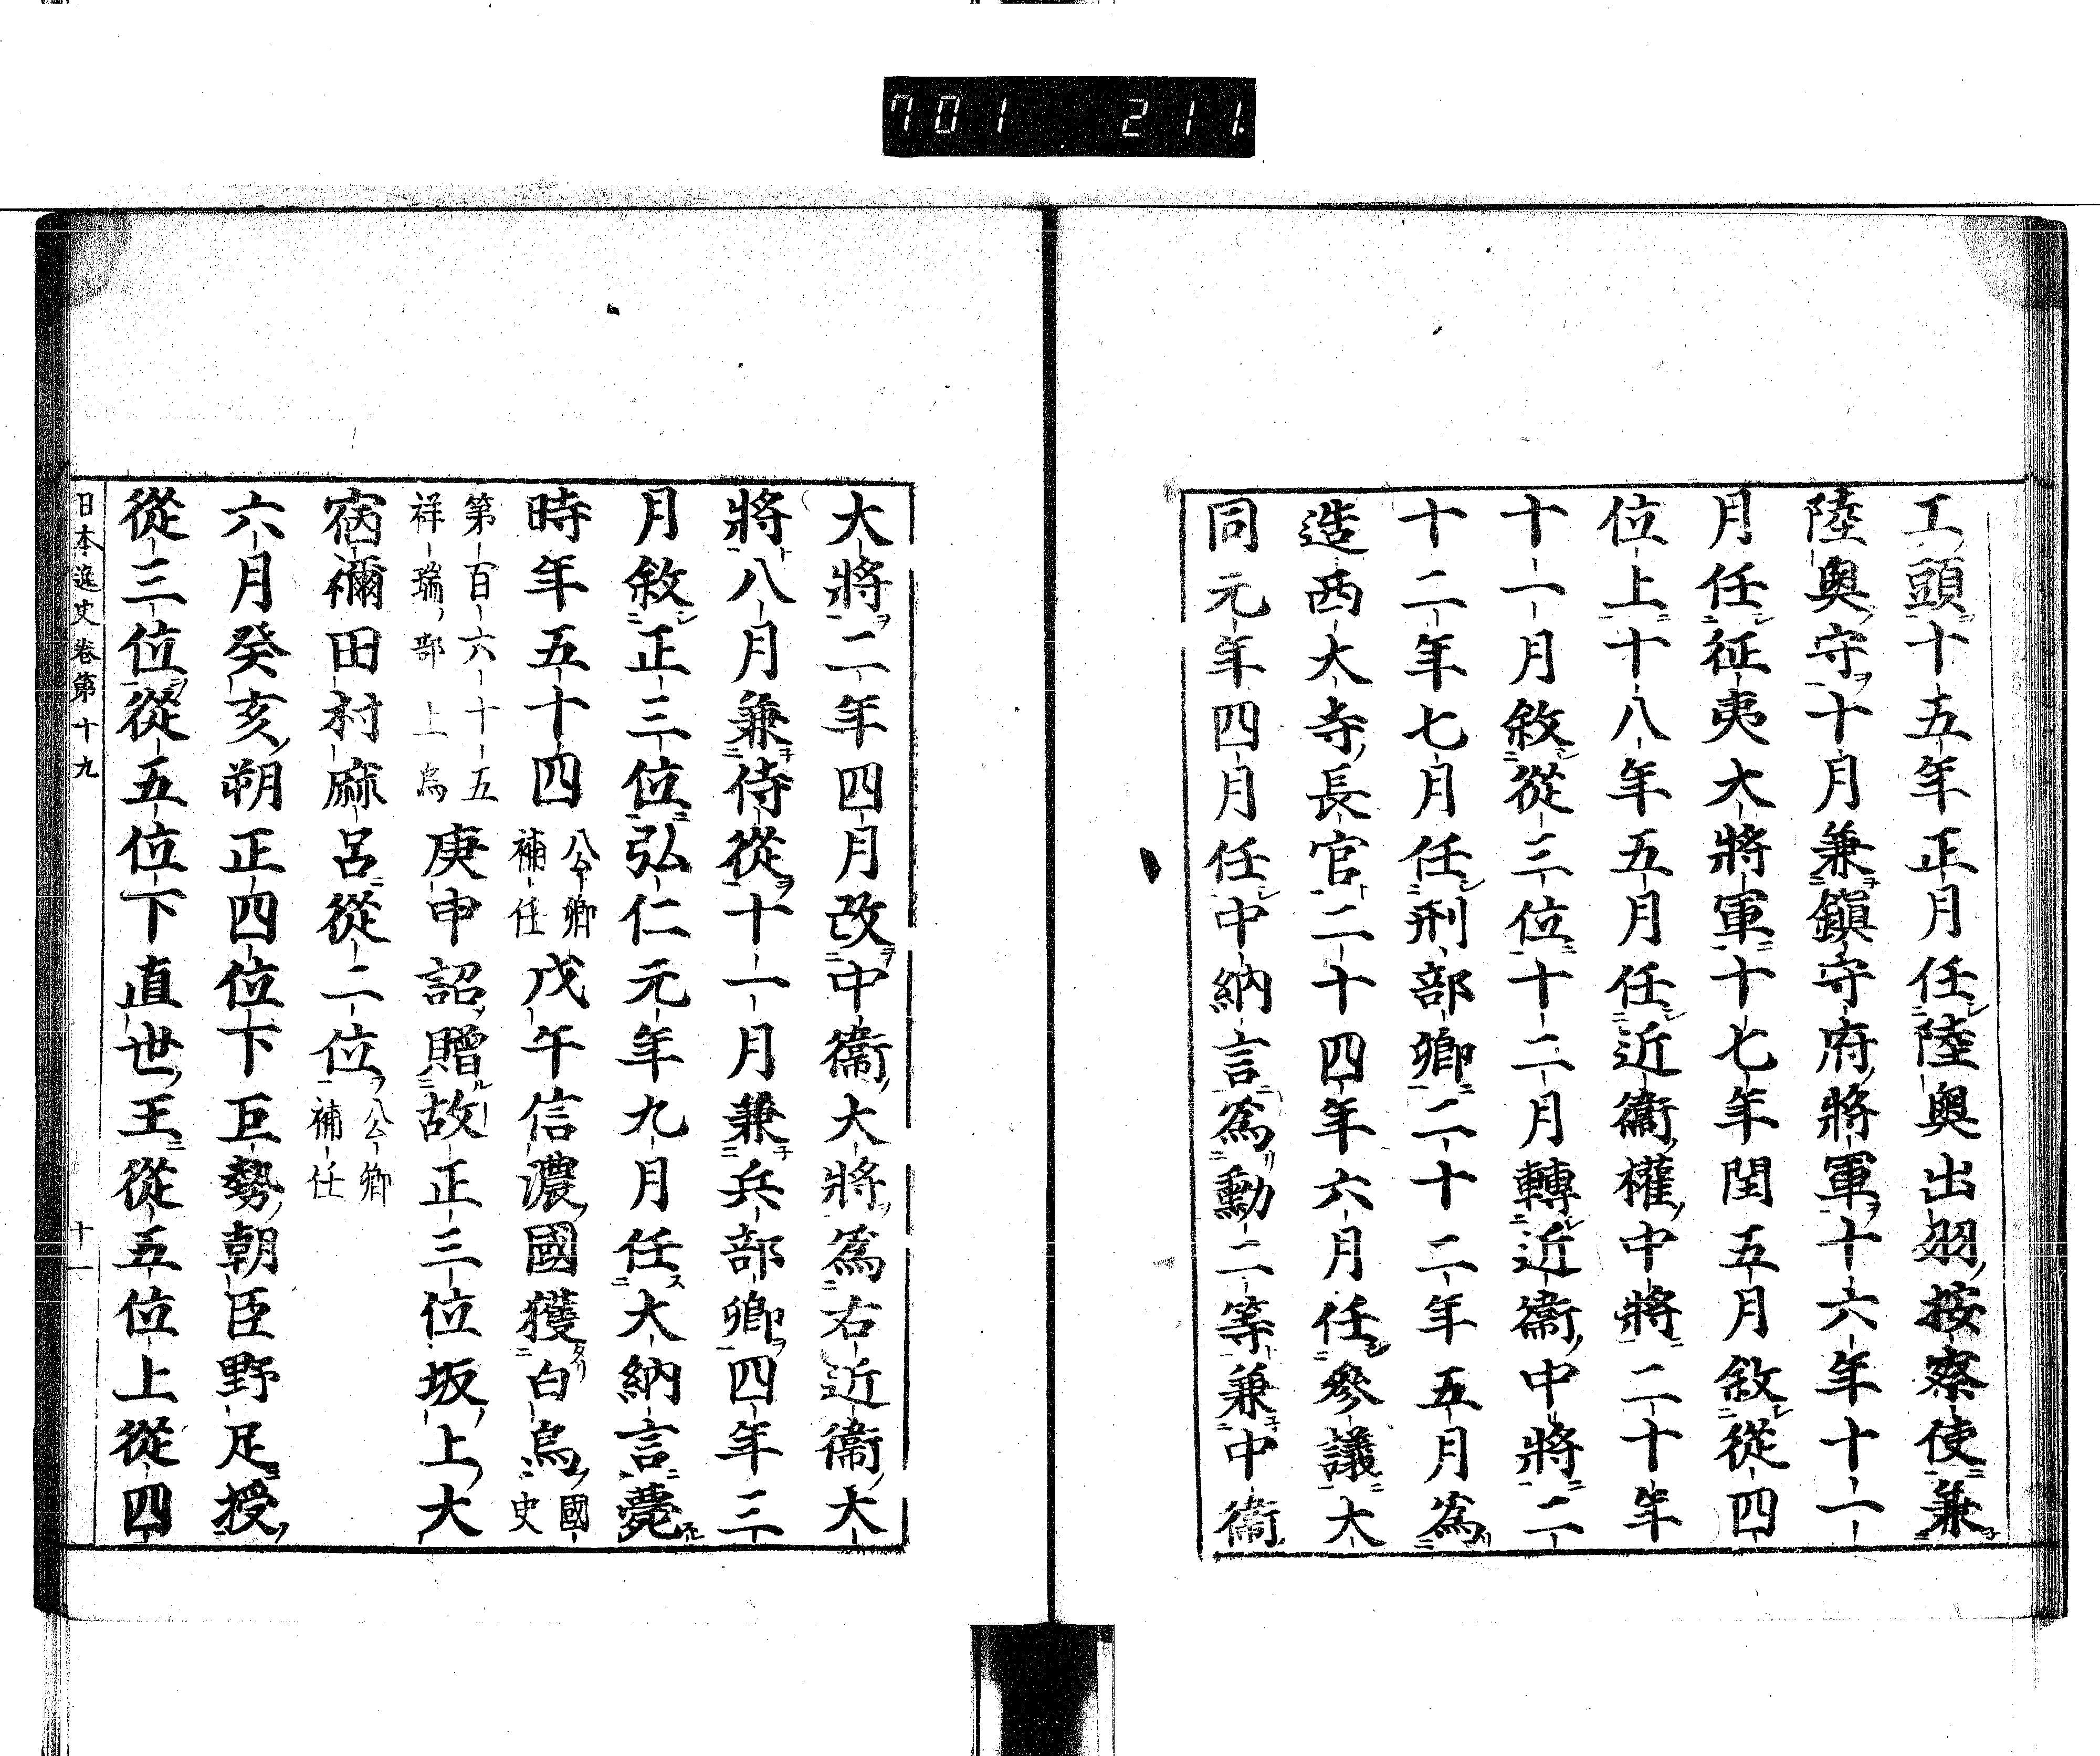 701 211
工頭十五年正月任陸奧出羽按察使兼
陸奧守十月兼鎭守府將軍十六年十一
月任征夷大將軍十七年閏五月敘從四
位上十八年五月任近衞權中將二十年
十一月敘從三位十二月轉近衞中將二
十二年七月任刑部卿二十二年五月爲
造西大寺長官二十四年六月任參議大
同元年四月任中納言爲勳二等兼中衞
大將二年四月改中衞大將爲右近衞大
將八月兼侍從十一月兼兵部卿四年三
月敘正三位弘仁元年九月任大納言薨
時年五十四公卿補任戊午信濃國獲白烏國史
第百六十五祥瑞部上烏庚申詔贈故正三位坂上大
宿禰田村麻呂從二位公卿補任
六月癸亥朔正四位下巨勢朝臣野足授
從三位從五位下直世王從五位上從四
日本逸史卷第十九 十一